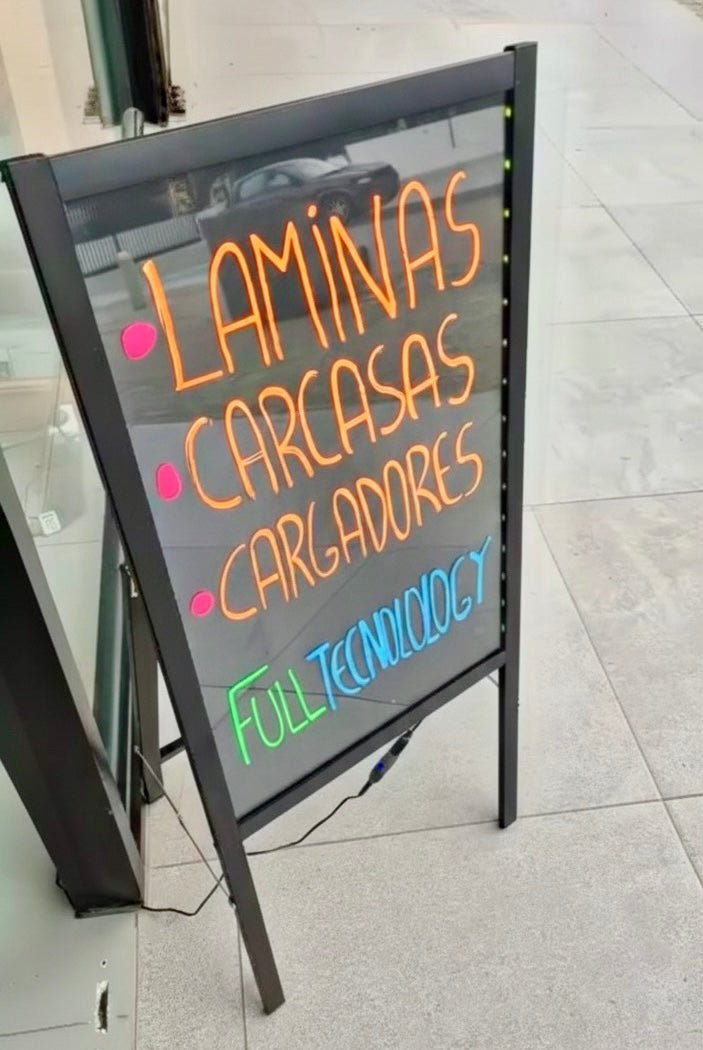 • LAMINAS
• CARCASAS
• CARGADORES
FULL TECNOLOLOGY